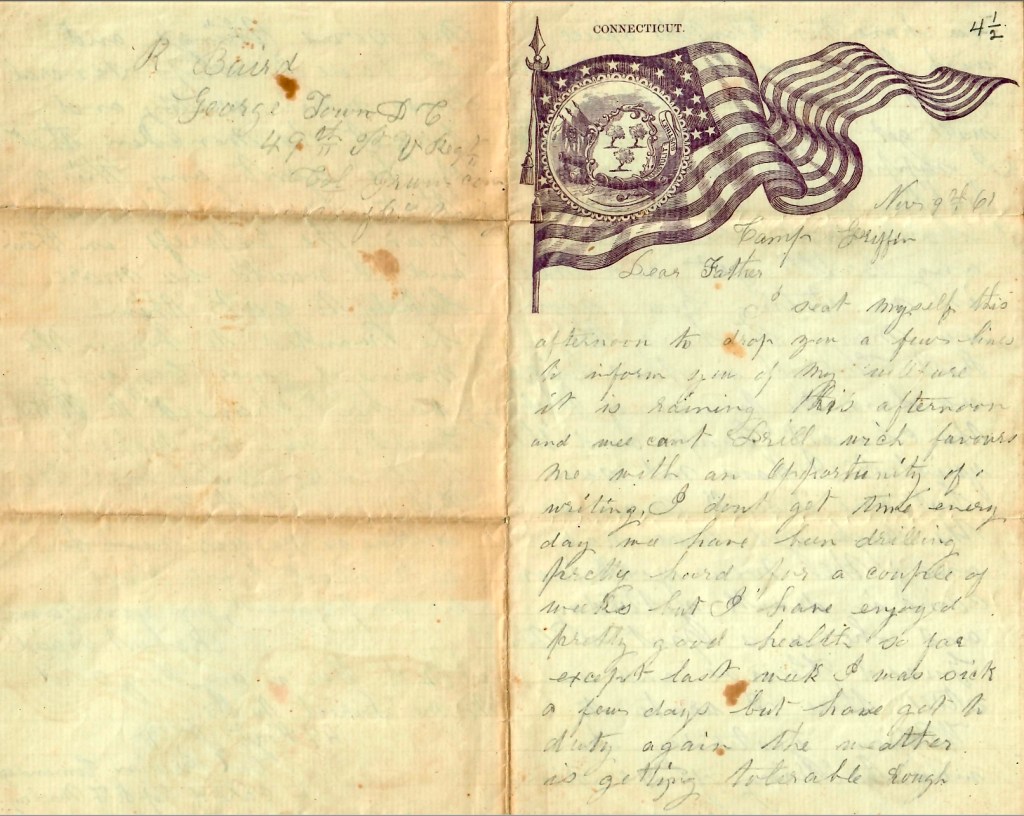 R Baird
George Town D C
49th
CONNECTICUT.
4 1/2
Nov 9th 61
Camp Griffin
Dear Father
I seat myself this
afternoon to drop you a few lines
to inform you of my
it is raining this afternoon
and wee cant Drill wich favours
me with an Opportunity of
writing, I dont get time every
day we have been drilling
pretty hard for a couple of
weeks but I have enjoyed
pretty good health so far
except last week I was sick
a few days but have got to
duty again the weather
is getting tolerable Rough